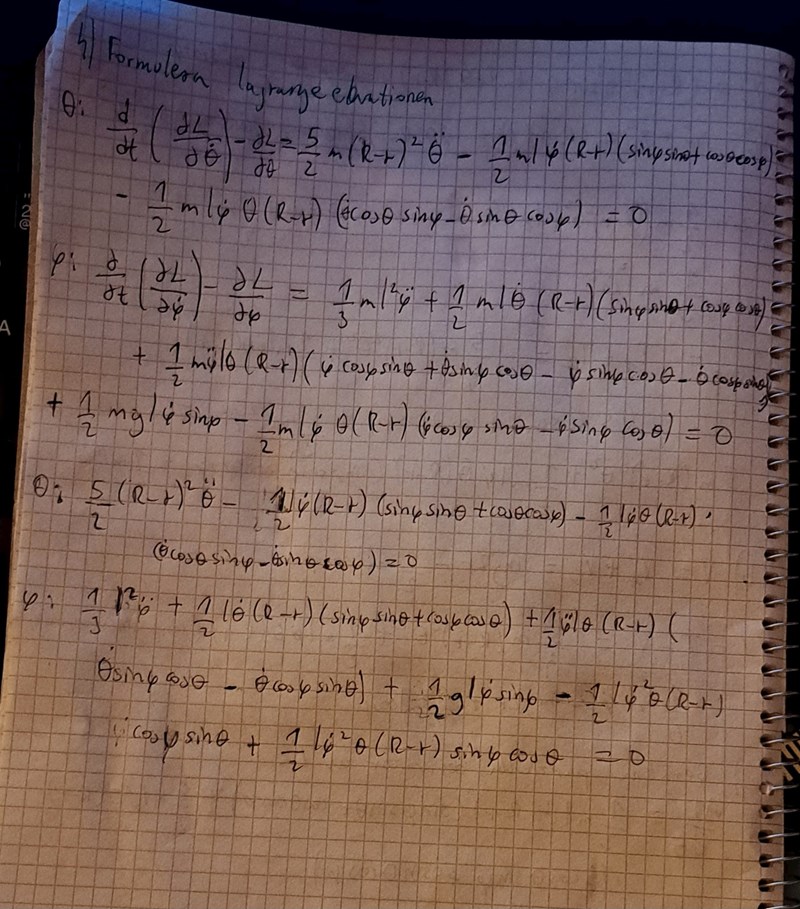 4) Formulera lagrangeekvationen
θ: d/dt (∂L/∂θ̇) - ∂L/∂θ = 5/2 m(R-r)² θ̈ - 1/2 ml φ̇ (R-r)(sinφ sinθ + cosθ cosφ)
- 1/2 ml φ̇ θ (R-r) (θ̇ cosθ sinφ - θ̇ sinθ cosφ) = 0
φ: ∂/∂t (∂L/∂φ̇) - ∂L/∂φ = 1/3 ml² φ̈ + 1/2 ml θ̇ (R-r)(sinφ sinθ + cosφ cosθ)
+ 1/2 mφ̈lθ (R-r)(φ̇ cosφ sinθ + θ̇ sinφ cosθ - φ̇ sinφ cosθ - θ̇ cosφ sinθ)
+ 1/2 mgl φ̇ sinφ - 1/2 ml φ̇ θ (R-r) (φ̇ cosφ sinθ - φ̇ sinφ cosθ) = 0
θ: 5/2 (R-r)² θ̈ - 1/2 lφ̇ (R-r) (sinφ sinθ + cosθ cosφ) - 1/2 lφ̇θ (R-r) ·
(θ̇ cosθ sinφ - θ̇ sinθ cosφ) = 0
φ: 1/3 l² φ̈ + 1/2 lθ̇ (R-r)(sinφ sinθ + cosφ cosθ) + 1/2 φ̈lθ (R-r) (
θ̇ sinφ cosθ - θ̇ cosφ sinθ) + 1/2 gl φ̇ sinφ - 1/2 lφ̇² θ (R-r)
cosφ sinθ + 1/2 lφ̇² θ (R-r) sinφ cosθ = 0